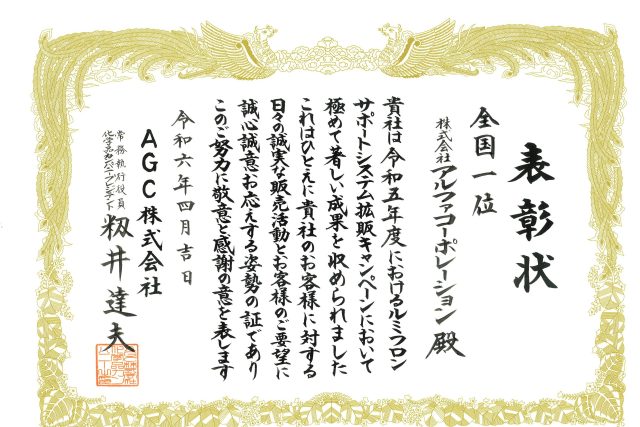 表彰状
全国一位
株式会社アルファコーポレーション 殿
貴社は令和五年度におけるルミフロン
サポートシステム拡販キャンペーンにおいて
極めて著しい成果を収められました
これはひとえに貴社のお客様に対する
日々の誠実な販売活動とお客様のご要望に
誠心誠意お応えする姿勢の証であり
このご努力に敬意と感謝の意を表します
令和六年四月吉日
AGC株式会社
常務執行役員
化学品カンパニープレジデント
籾井達夫